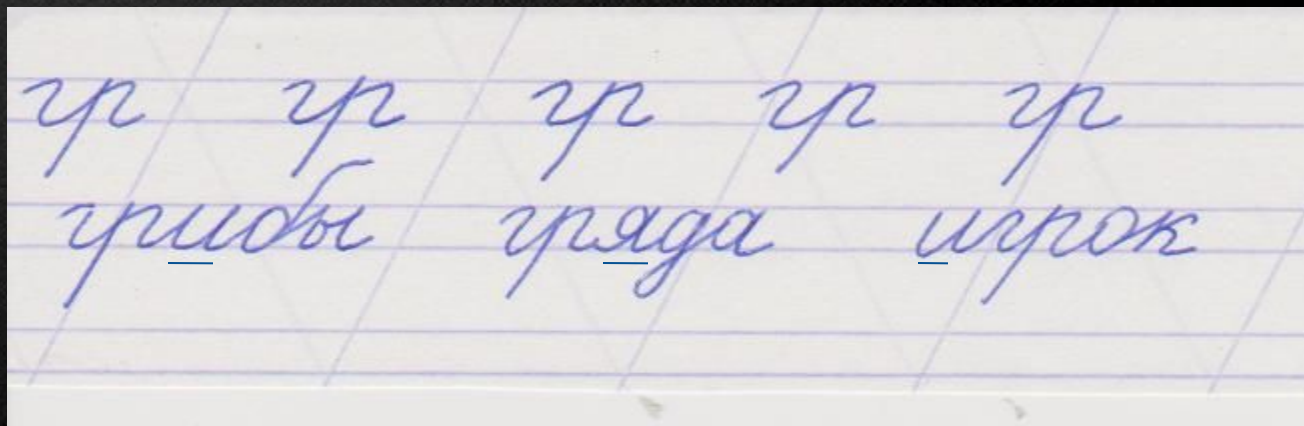 гр гр гр гр гр
грибы гряда игрок